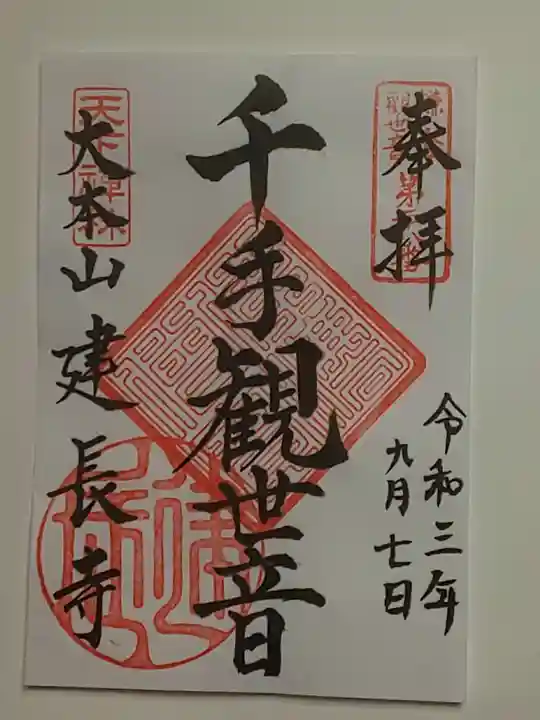 奉拝
令和三年
九月七日
千手観世音
天下禅林
大本山建長寺